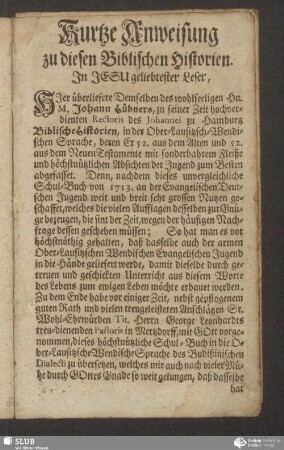 Kurtze Anweisung
zu diesen Biblischen Historien.
In JESU geliebtester Leser,
HIer überliefere Demselben des wohlseeligen Hn.
M. Johann Hübners, zu seiner Zeit hochver-
dienten Rectoris des Johannei zu Hamburg
Biblische Historien, in der Ober-Lausitzsch-Wendi-
schen Sprache, deren Er 52. aus dem Alten und 52.
aus dem Neuen Testamente mit sonderbahren Fleiße
und höchstnützlichen Absichten der Jugend zum Besten
abgefasset. Denn, nachdem dieses unvergleichliche
Schul-Buch von 1713. an der Evangelischen Deut-
schen Jugend weit und breit sehr grossen Nutzen ge-
schaffet, welches die vielen Aufflagen desselben zur Gnü-
ge bezeugen, die sint der Zeit, wegen der häufigen Nach-
frage dessen geschehen müssen; So hat man es vor
höchstnöthig gehalten, daß dasselbe auch der armen
Ober-Lausitzschen Wendischen Evangelischen Jugend
in die Hände geliefert werde, damit dieselbe durch ge-
treuen und geschickten Unterricht aus diesem Worte
des Lebens zum ewigen Leben möchte erbauet werden.
Zu dem Ende habe vor einiger Zeit, nebst gepflogenem
guten Rath und vielen treugeleisteten Anschlägen Sr.
Wohl-Ehrwürden Tit. Herrn George Leonhardts
treu-dienenden Pastoris in Mertzdorff, mit GOtt vorge-
nommen, dieses höchstnützliche Schul-Buch in die O-
ber-Lausitzsche Wendische Sprache des Budißinischen
Dialecti zu übersetzen, welches mir auch nach vieler Mü-
he durch GOttes Gnade so weit gelungen, daß dasselbe
hat
SLUB
Wir führen Wissen.